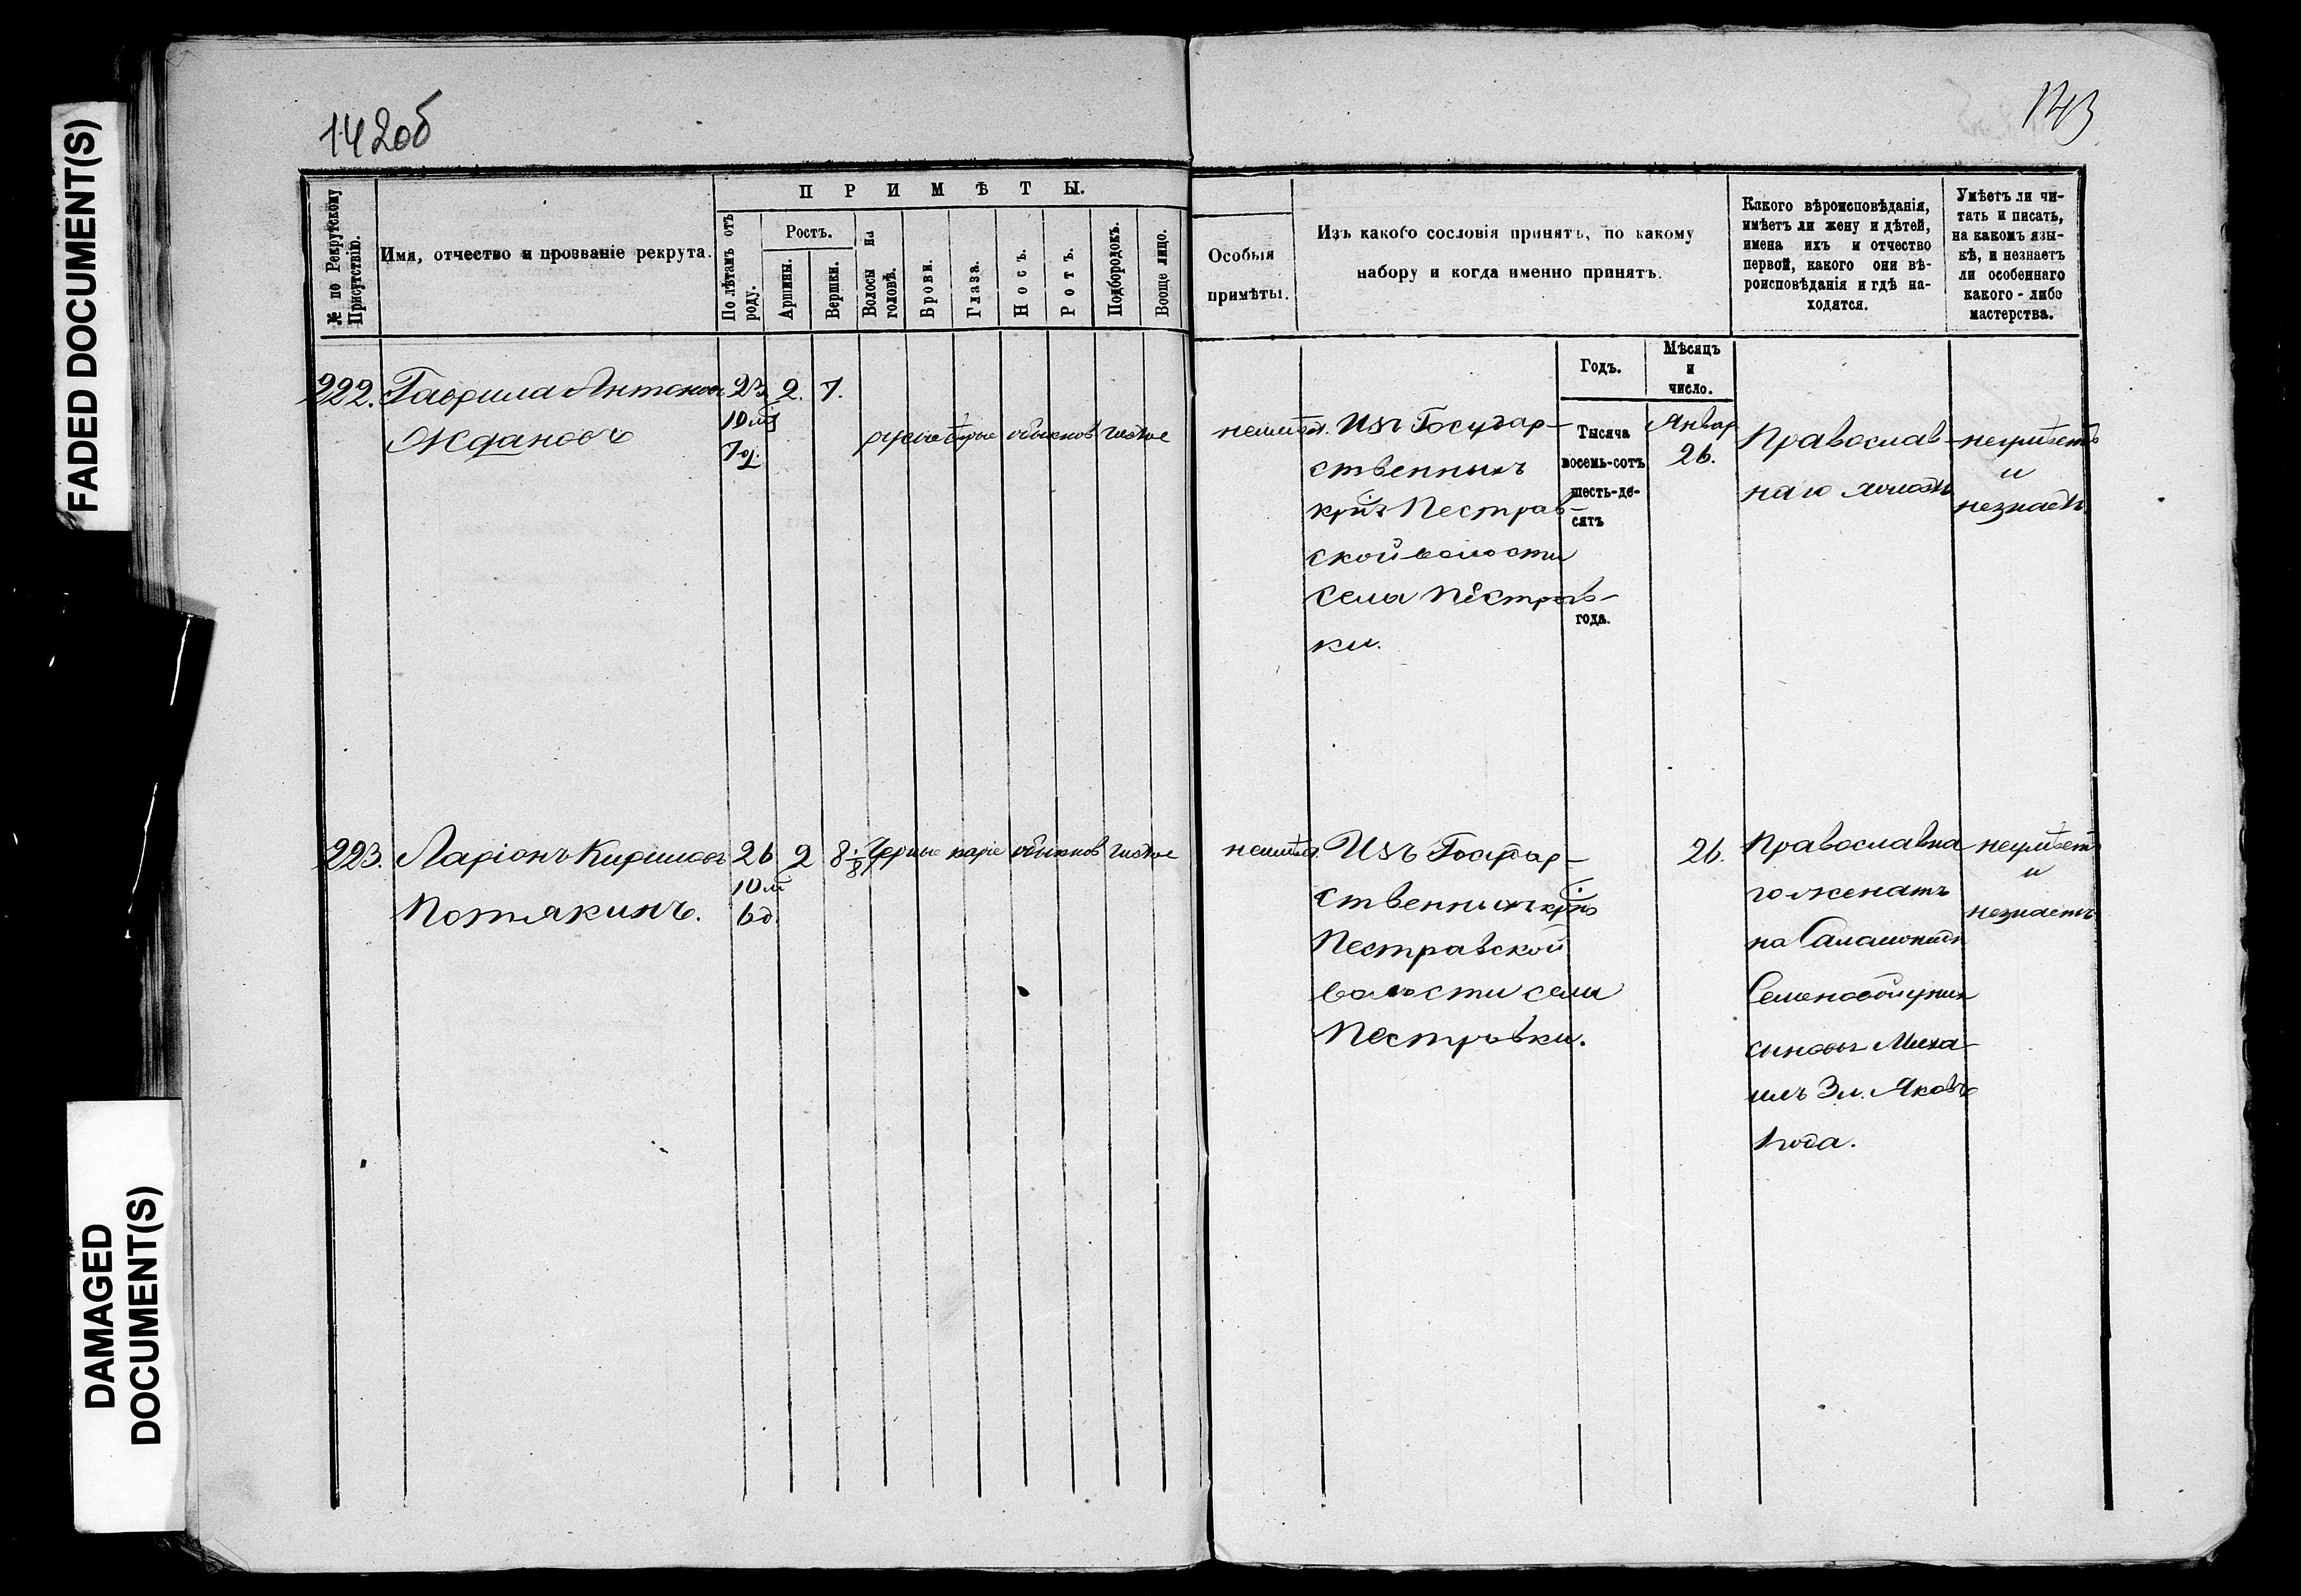 FADED DOCUMENT(S)
DAMAGED
DOCUMENT(S)
142об
143
№ по Рекрутскому
Присутствію.
Имя, отчество и прозваніе рекрута.
ПРИМѢТЫ.
По лѣтамъ отъ
роду.
Ростъ.
Аршины.
Вершки.
Волосы на
головѣ.
Брови.
Глаза.
Носъ.
Ротъ.
Подбородокъ.
Вооще лицо.
Особыя
примѣты.
Изъ какого сословія принятъ, по какому
набору и когда именно принятъ.
Какого вѣроисповѣданія,
имѣетъ ли жену и дѣтей,
имена ихъ и отчество
первой, какого они вѣ-
роисповѣданія и гдѣ на-
ходятся.
Умѣетъ ли чи-
тать и писать,
на какомъ язы-
кѣ, и незнаетъ
ли особеннаго
какого-либо
мастерства.
Годъ.
Мѣсяцъ
и
число.
Тысяча
восемь-сотъ
шесть-де-
сятъ
года.
222. Гаврила Антоновъ 23 2. 7.
Ждановъ
10 м
7 д.
русые сѣрые обыкнов чистое
неимѣет.
Изъ Государ-
ственныхъ
крпъ Пестрав-
ской волости
села Пестрав-
ки.
Январ
26.
Православ-
наго холостъ
неумѣетъ
и
незнаетъ
223. Ларіонъ Кириловъ 26 2 8 1/8
Потякинъ.
10 м
6 д.
Черные каріе обыкнов чистое
неимѣет.
Изъ Государ-
ственныхъ крпъ
Пестравской
волости села
Пестравки.
26.
Православна
го женатъ
на
Семеновой у них
сыновья Миха-
илъ 3 л. Яковъ
1 года.
неумѣетъ
и
незнаетъ